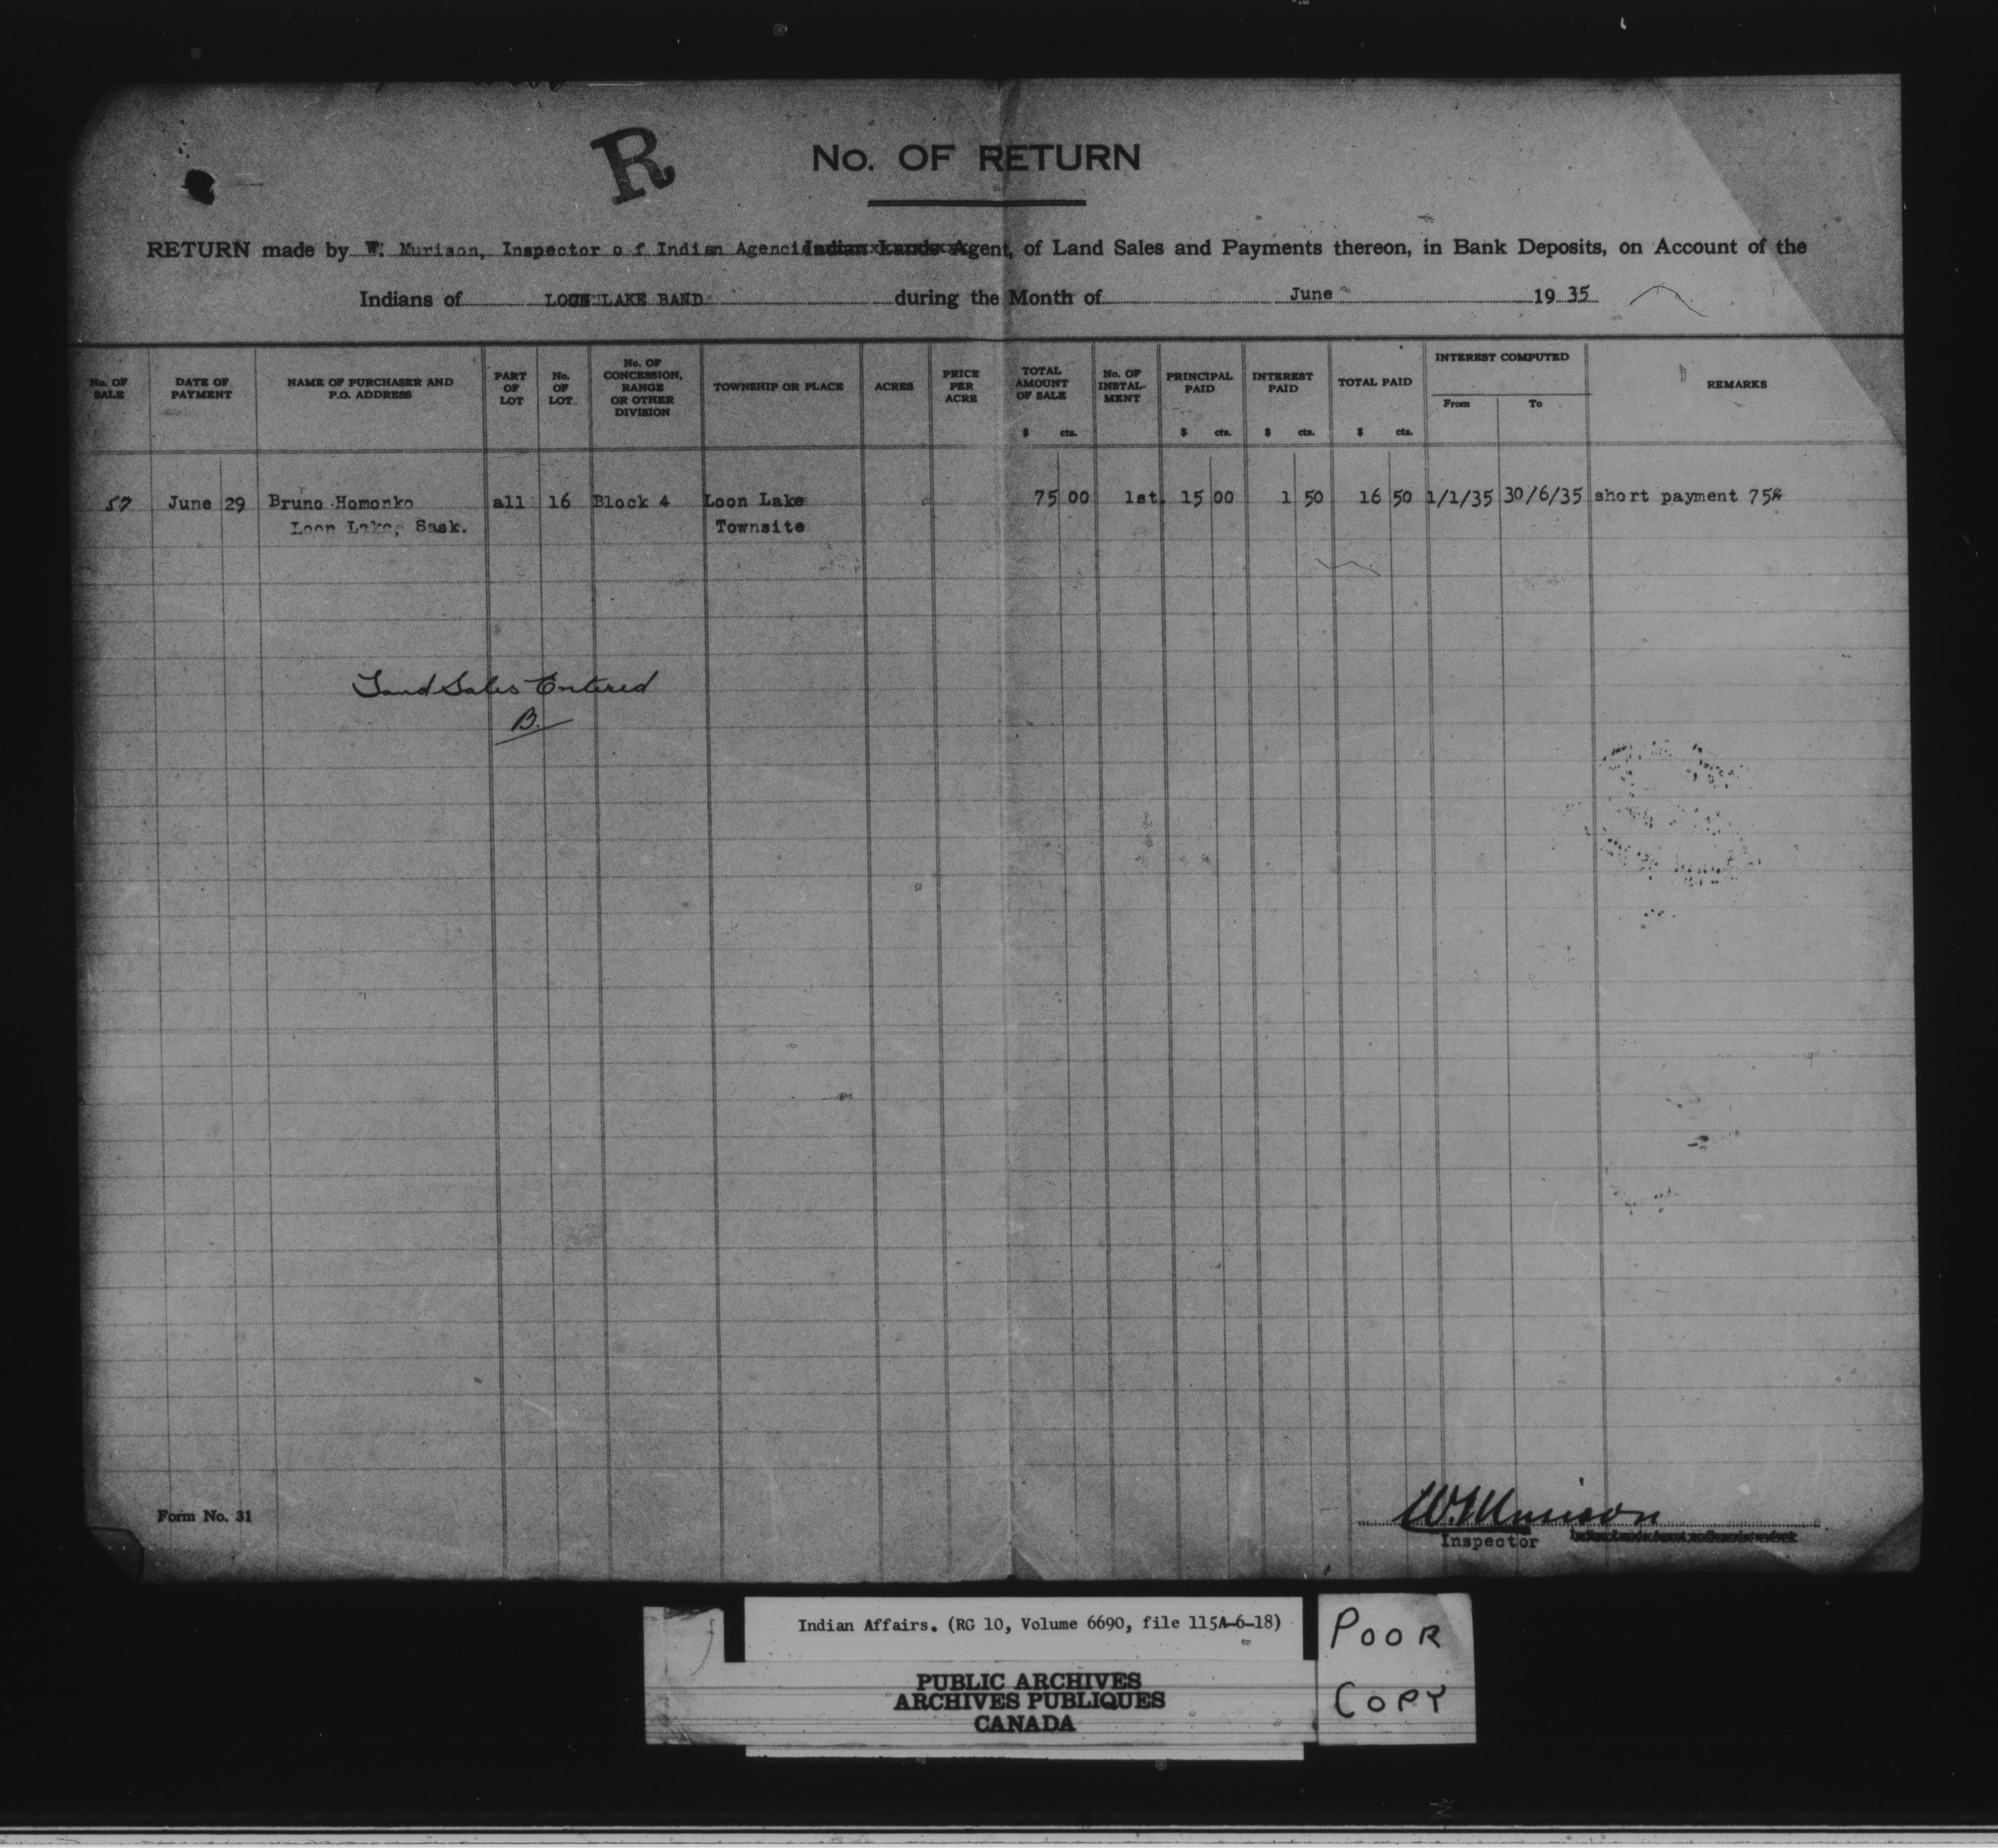 R
No. OF RETURN
RETURN made by W. Murison, Inspector o f Indian Agencie Indian Lands Agent, of Land Sales and Payments thereon, in Bank Deposits, on Account of the
Indians of LOON LAKE BAND during the Month of June 19 35
No. OF SALE DATE OF PAYMENT NAME OF PURCHASER AND P.O. ADDRESS PART OF LOT No. OF LOT No. OF CONCESSION, RANGE OR OTHER DIVISION TOWNSHIP OR PLACE ACRES PRICE PER ACRE TOTAL AMOUNT OF SALE $ cts. No. OF INSTAL-MENT PRINCIPAL PAID $ cts. INTEREST PAID $ cts. TOTAL PAID $ cts. INTEREST COMPUTED From To REMARKS
57 June 29 Bruno Homonko all 16 Block 4 Loon Lake 75 00 1st. 15 00 1 50 16 50 1/1/35 30/6/35 short payment 75¢
Loon Lake, Sask. Townsite
Land Sales Entered
B.
Form No. 31
W. Murison
Inspector
Indian Affairs. (RG 10, Volume 6690, file 115A-6-18)
PUBLIC ARCHIVES
ARCHIVES PUBLIQUES
CANADA
POOR
COPY